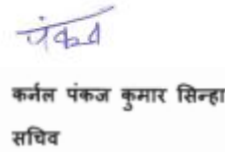 पंकज
कर्नल पंकज कुमार सिन्हा
सचिव